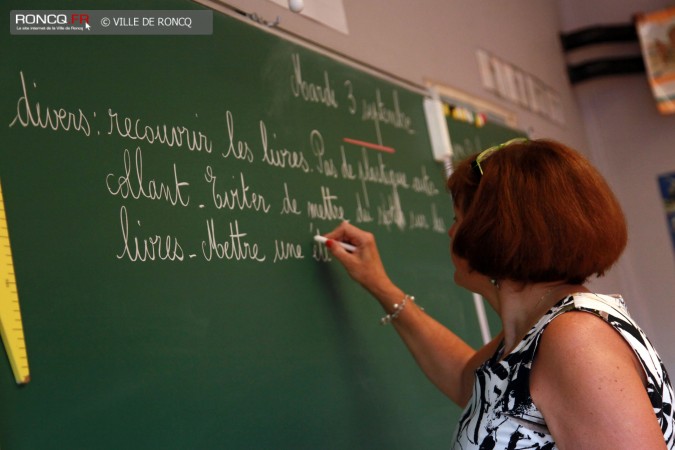 RONCQ.FR
Le site internet de la Ville de Roncq
© VILLE DE RONCQ
Mardi 3 septembre
divers: recouvrir les livres. Pas de plastique auto-
collant. Eviter de mettre du scotch sur les
livres. Mettre une éti